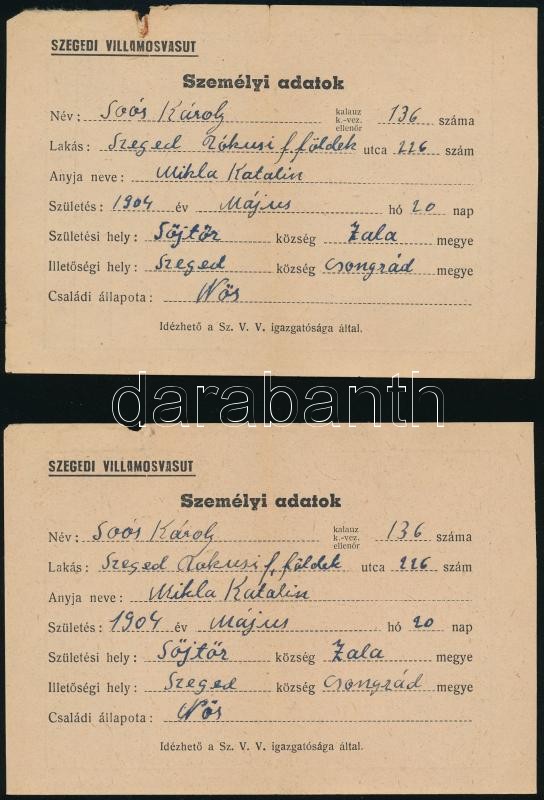 SZEGEDI VILLAMOSVASUT
Személyi adatok
Név: Soós Károly kalauz k.-vez. ellenőr 136 száma
Lakás: Szeged Rókusi f. földek utca 226 szám
Anyja neve: Mikla Katalin
Születés: 1904 év Május hó 20 nap
Születési hely: Söjtör község Zala megye
Illetőségi hely: Szeged község Csongrád megye
Családi állapota: Nős
Idézhető a Sz. V. V. igazgatósága által.
darabanth
SZEGEDI VILLAMOSVASUT
Személyi adatok
Név: Soós Károly kalauz k.-vez. ellenőr 136 száma
Lakás: Szeged Rókusi f. földek utca 226 szám
Anyja neve: Mikla Katalin
Születés: 1904 év Május hó 20 nap
Születési hely: Söjtör község Zala megye
Illetőségi hely: Szeged község Csongrád megye
Családi állapota: Nős
Idézhető a Sz. V. V. igazgatósága által.